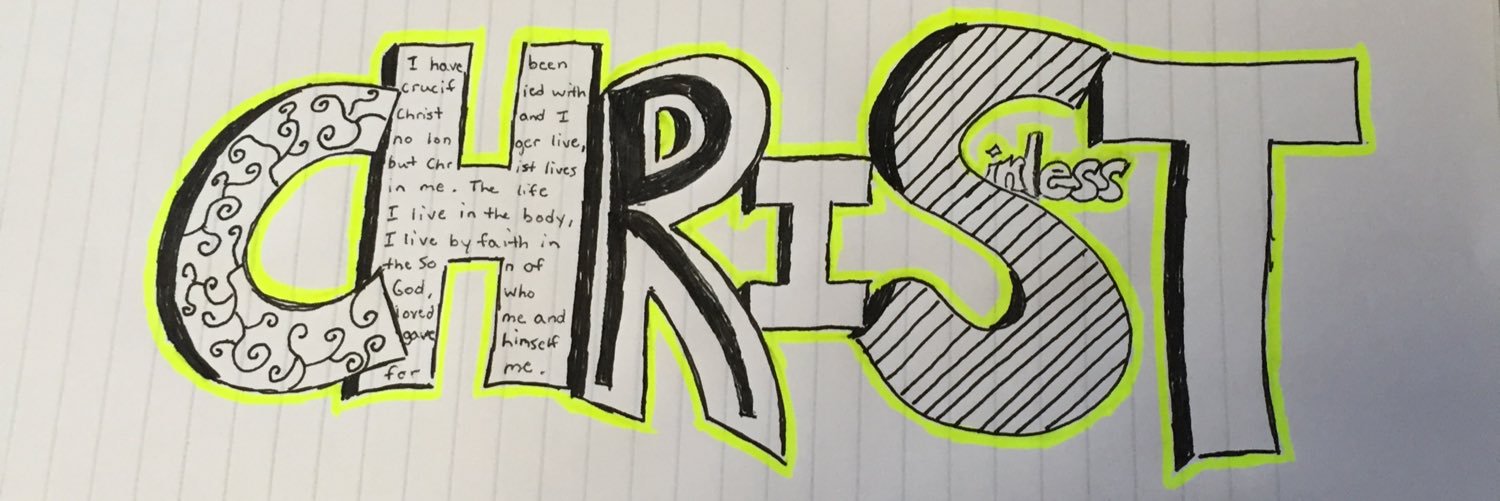 CHRIST
I have been
crucif ied with
Christ and I
no lon ger live,
but Chr ist lives
in me. The life
I live in the body,
I live by faith in
the So n of
God, who
loved me and
gave himself
for me.
inless